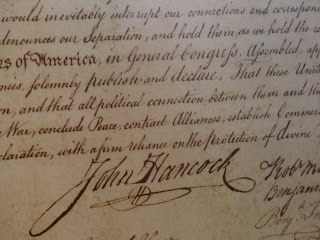 would inevitably interrupt our connections and correspon
denounces our Separation, and hold them, as we hold the re
es of America, in General Congress, Assembled, app
nies, solemnly publish and declare, That these Unite
on, and that all political connection between them and th
y War, conclude Peace, contract Alliances, establish Commer
claration, with a firm reliance on the protection of divine
John Hancock
Robt M
Benjam
Benj.